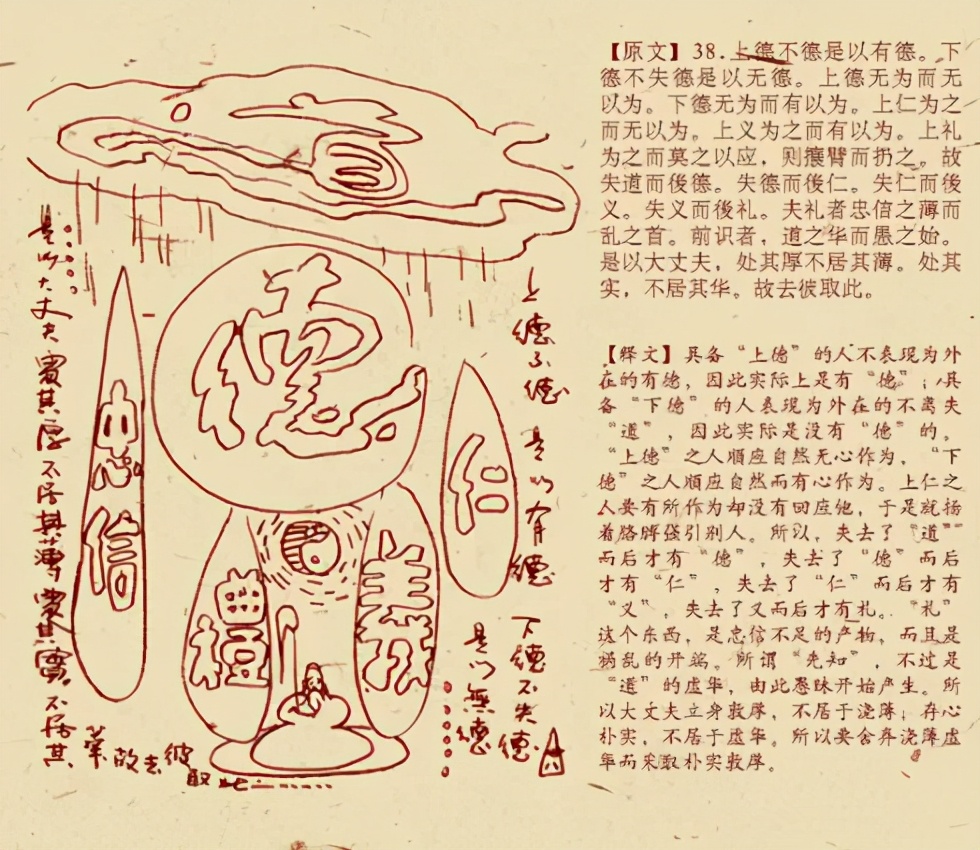 【原文】38.上德不德是以有德。下
德不失德是以无德。上德无为而无
以为。下德无为而有以为。上仁为之
而无以为。上义为之而有以为。上礼
为之而莫之以应，则攘臂而扔之。故
失道而後德。失德而後仁。失仁而後
义。失义而後礼。夫礼者忠信之薄而
乱之首。前识者，道之华而愚之始。
是以大丈夫，处其厚不居其薄。处其
实，不居其华。故去彼取此。
【释文】具备“上德”的人不表现为外
在的有德，因此实际上是有“德”；具
备“下德”的人表现为外在的不离失
“道”，因此实际是没有“德”的。
“上德”之人顺应自然无心作为，“下
德”之人顺应自然而有心作为。上仁之
人要有所作为却没有回应他，于是就扬
着胳膊强引别人。所以，失去了“道”
而后才有“德”，失去了“德”而后
才有“仁”，失去了“仁”而后才有
“义”，失去了义而后才有礼。“礼”
这个东西，是忠信不足的产物，而且是
祸乱的开端。所谓“先知”，不过是
“道”的虚华，由此愚昧开始产生。所
以大丈夫立身敦厚，不居于浇薄；存心
朴实，不居于虚华。所以要舍弃浇薄虚
华而采取朴实敦厚。
德
仁
忠信
禮
義
上德不德是以有德
下德不失德
是以無德
是以大丈夫處其厚不居其薄處其實不居其
華故去彼
取此